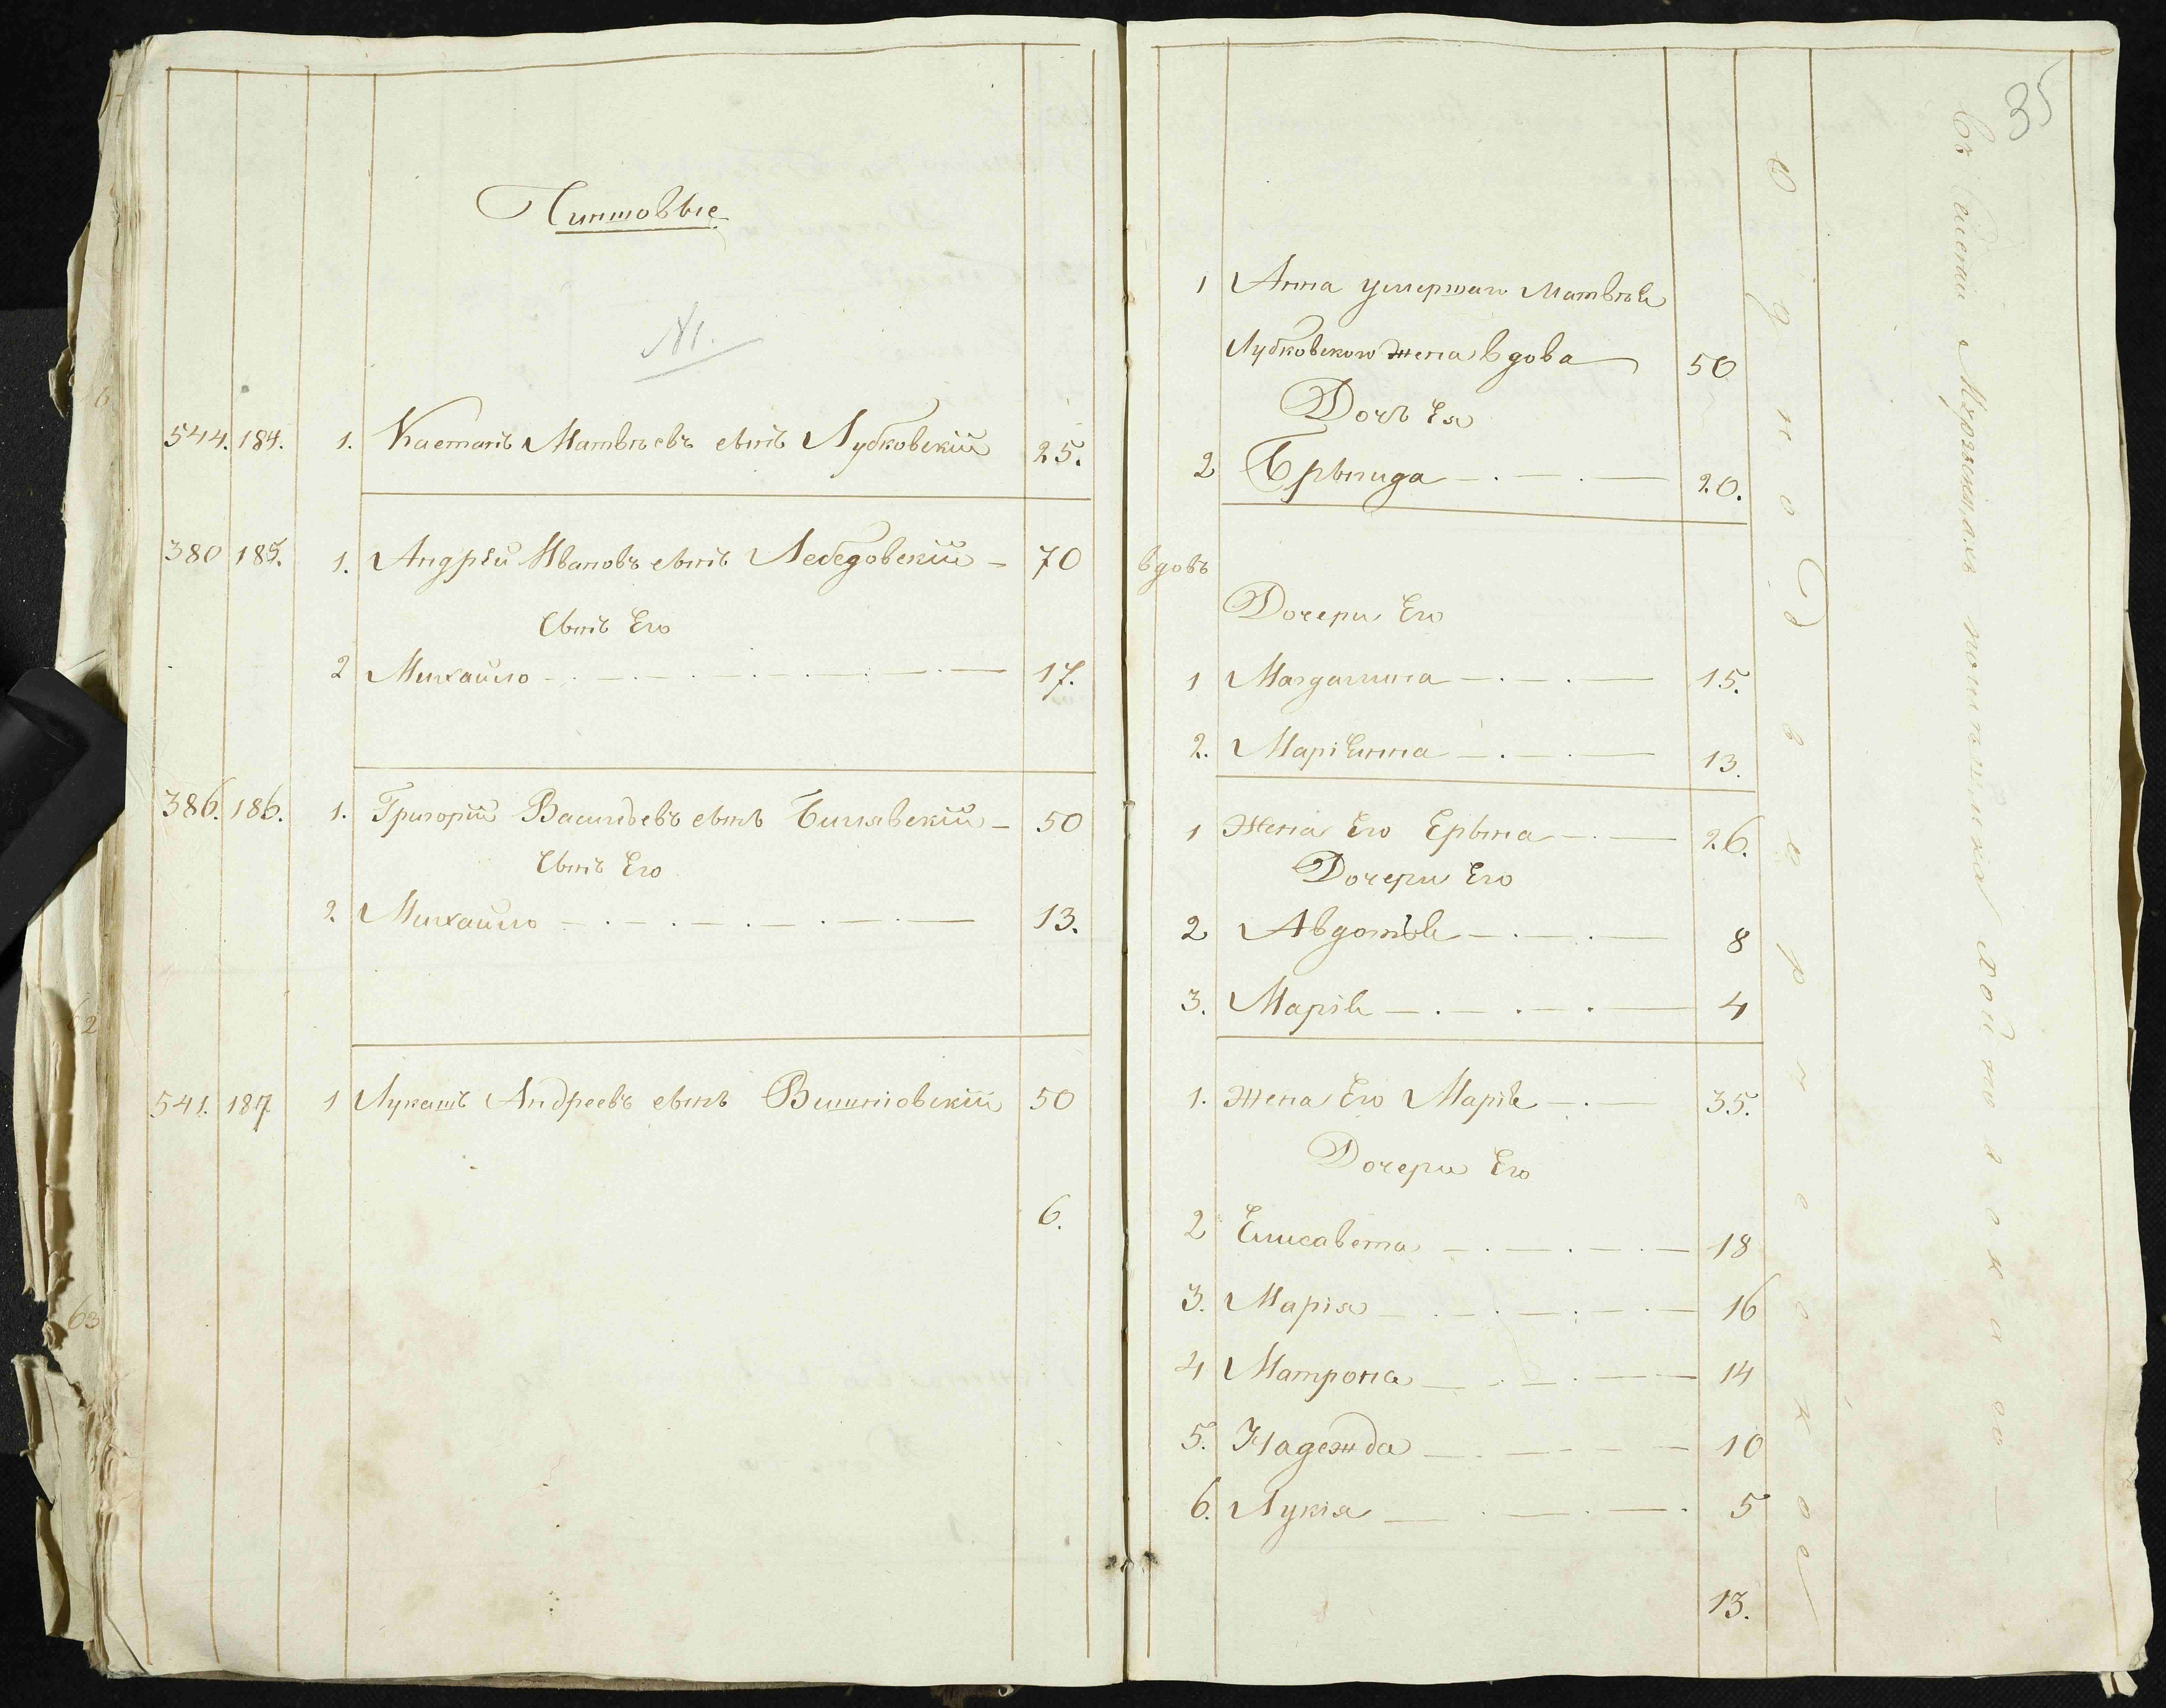 35
Чиншовые
№1.
544. 184. 1. Каетанъ Матвѣевъ сынъ Лубковскій 25.
380 185. 1. Андрей Ивановъ сынъ Лебедовскій - 70
Сынъ Его
2 Михайло 17.
386. 186. 1. Григорій Васильевъ сынъ Билявскій - 50
Сынъ Его
2. Михайло 13.
541. 187 1 Лукашъ Андреевъ сынъ Вишніовскій 50
6.
1 Анна умершаго Матвѣя
Лубковского жена вдова 50
Дочь Ея
2 Брыгида 20.
вдовъ
Дочери Его
1 Магдалина 15.
2. Маріянна 13.
1 Жена Его Ерына 26.
Дочери Его
2 Авдотія 8
3. Марія 4
1. Жена Его Марія 35.
Дочери Его
2 Елисавета 18
3. Марія 16
4 Матрона 14
5. Надежда 10
6. Лукія 5
13.
Однодворческое